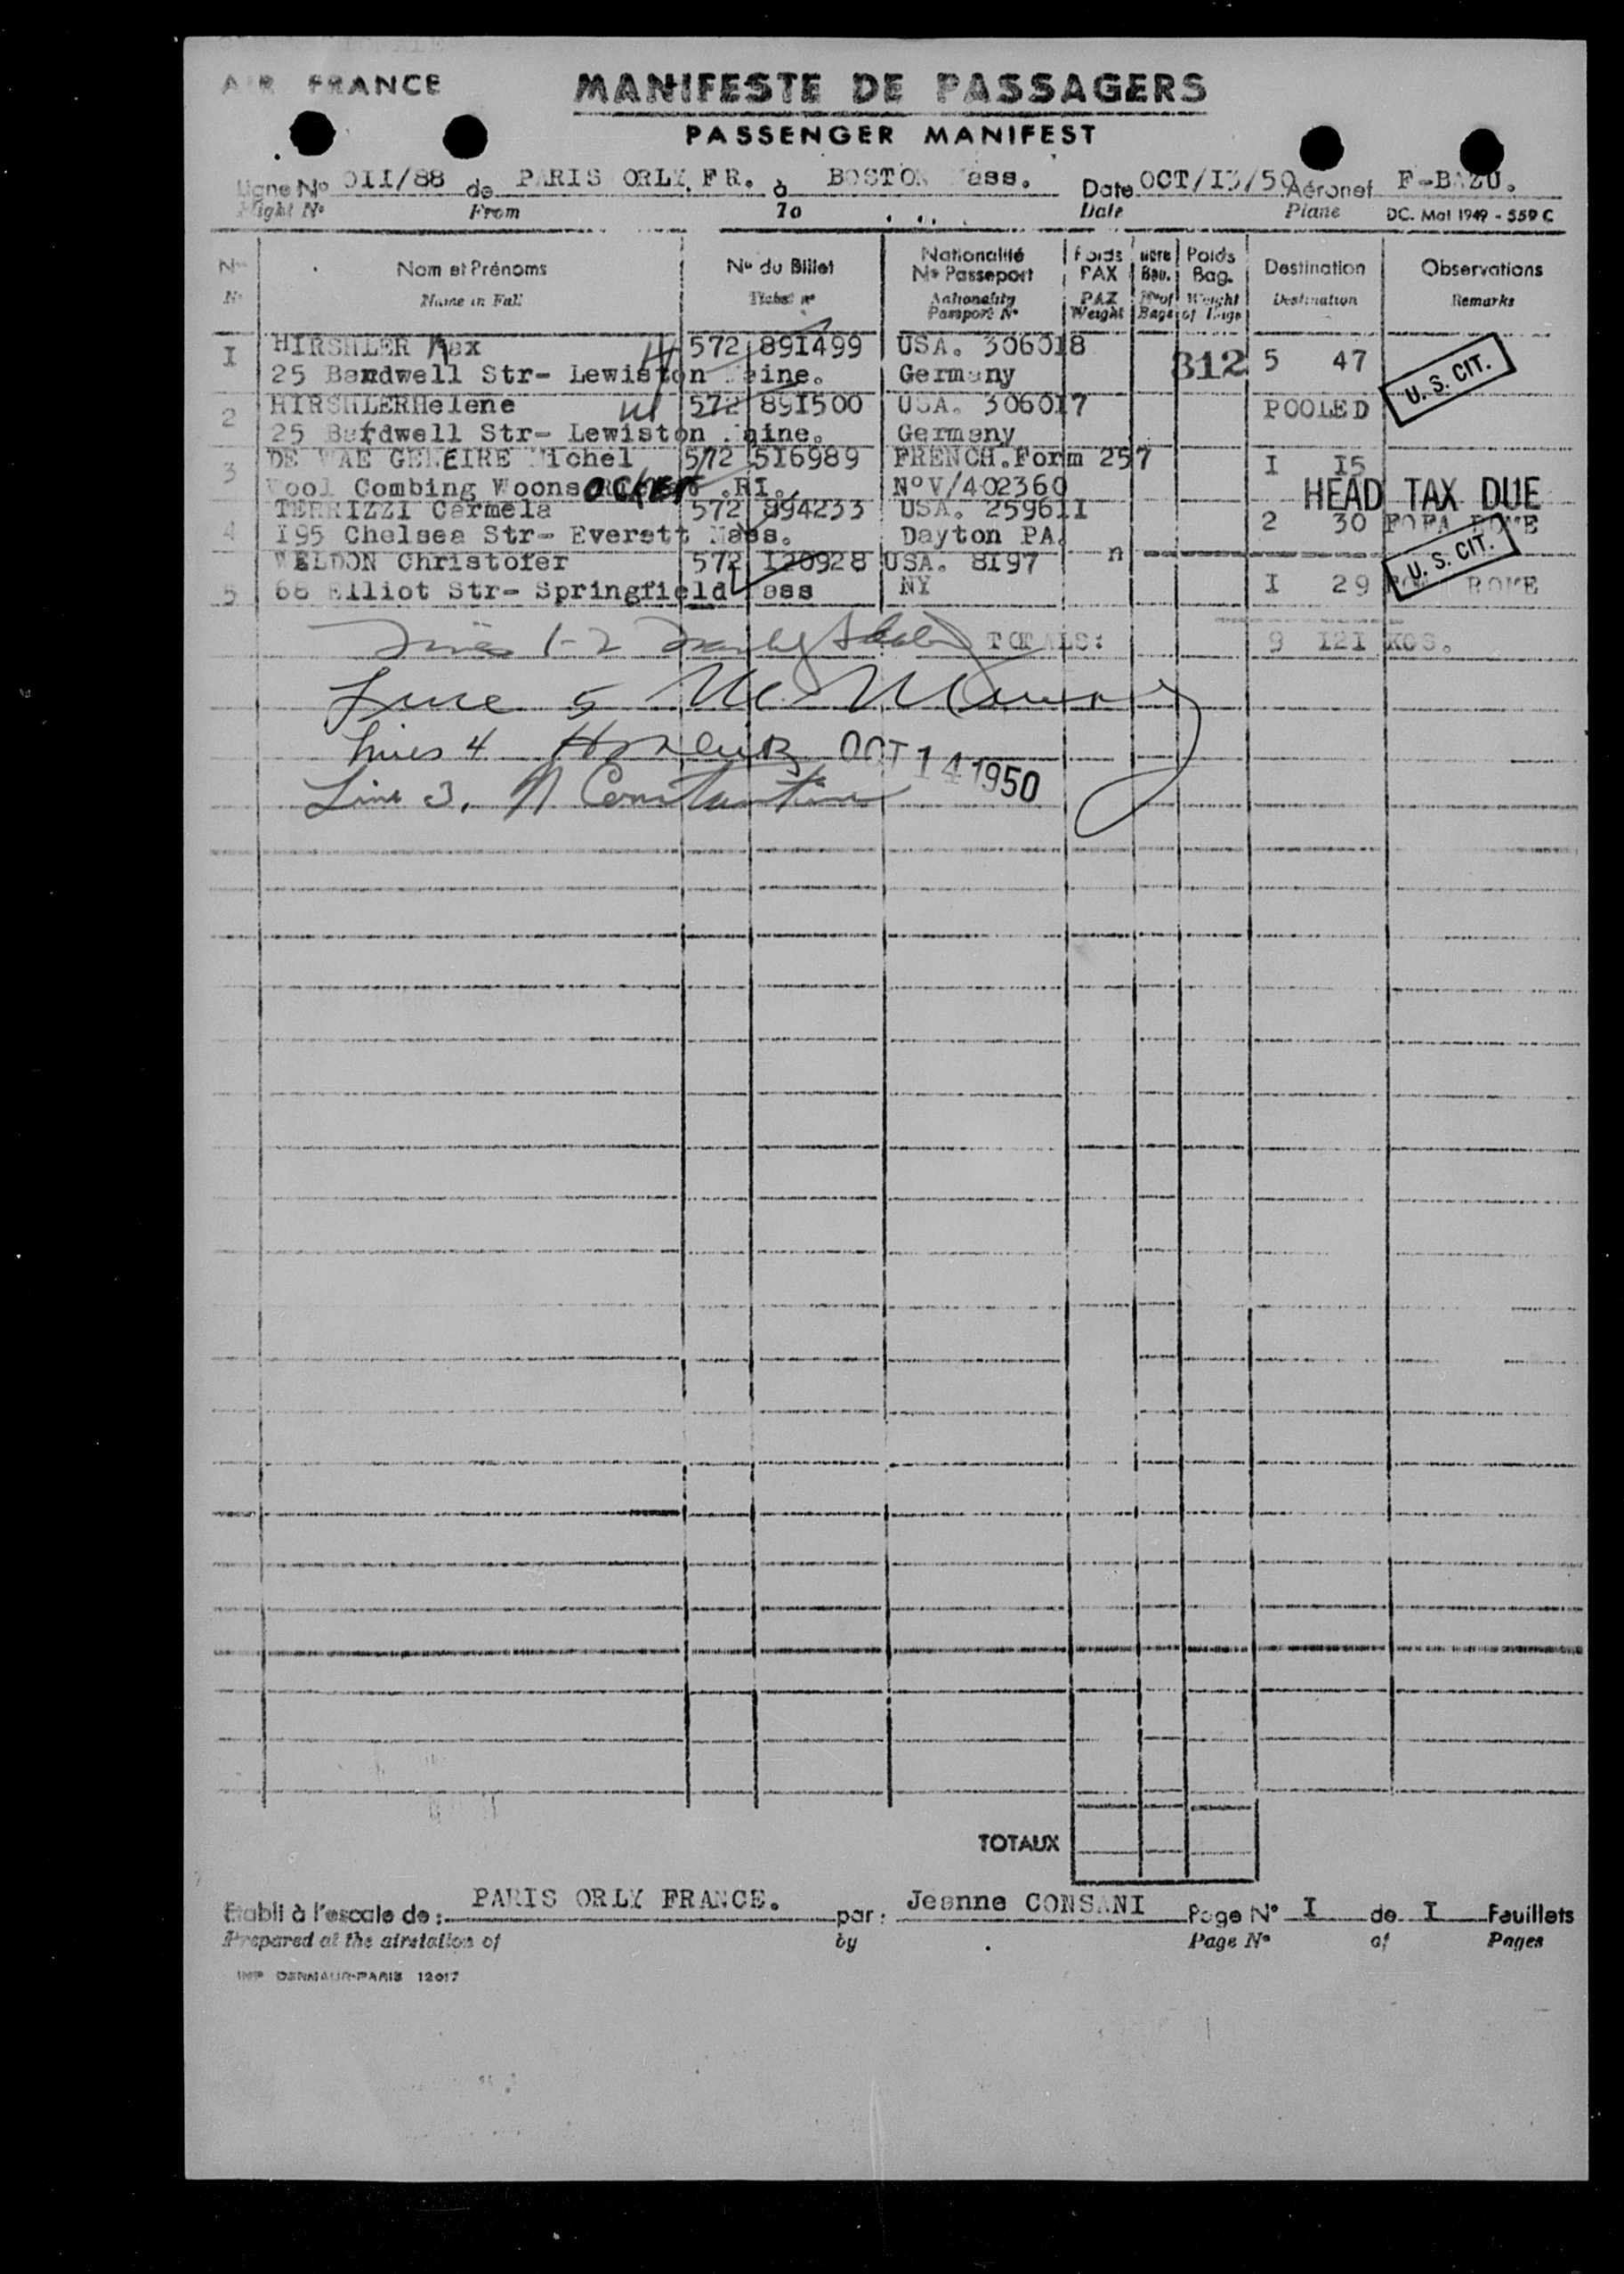 AIR FRANCE
MANIFESTE DE PASSAGERS
PASSENGER MANIFEST
Ligne No 011/88 de PARIS ORLY.FR. à BOSTON Mass. Date OCT/I3/50 Aéronef F-BAZU.
Flight No From To Date Plane DC. Mai 1949 - 559 C
No Nom et Prénoms No du Billet Nationalité No Passeport Poids PAX Nbre Bag. Poids Bag. Destination Observations
No Name in Full Ticket no Nationality Passport No PAX Weight No of Bags Weight of Bags Destination Remarks
I HIRSHLER Max 572 89I499 USA. 3060I8 312 5 47 U. S. CIT.
25 Bardwell Str- Lewiston Maine. Germany
2 HIRSHLERHelene 572 89I500 USA. 3060I7 POOLED
25 Bardwell Str- Lewiston Maine. Germany
3 DE WAE GENEIRE Michel 572 5I6989 FRENCH.Form 257 I I5
Wool Combing Woonsocket .RI. NoV/402360 HEAD TAX DUE
4 TERRIZZI Carmela 572 894233 USA. 2596II 2 30 ROMA ROME
I95 Chelsea Str- Everett Mass. Dayton PA. U. S. CIT.
WELDON Christofer 572 I20928 USA. 8I97 n
5 68 Elliot Str- Springfield Mass NY I 29 ROME
Lines 1-2 TOTALS: 9 I2I KGS.
Line 5 Mc
Lines 4 OCT 14 1950
Line 3. Constantine
TOTAUX
Etabli à l'escale de : PARIS ORLY FRANCE. par : Jeanne CONSANI Page No I de I Feuillets
Prepared at the airstation of by Page No of Pages
IMP DENMAUR-PARIS 12017